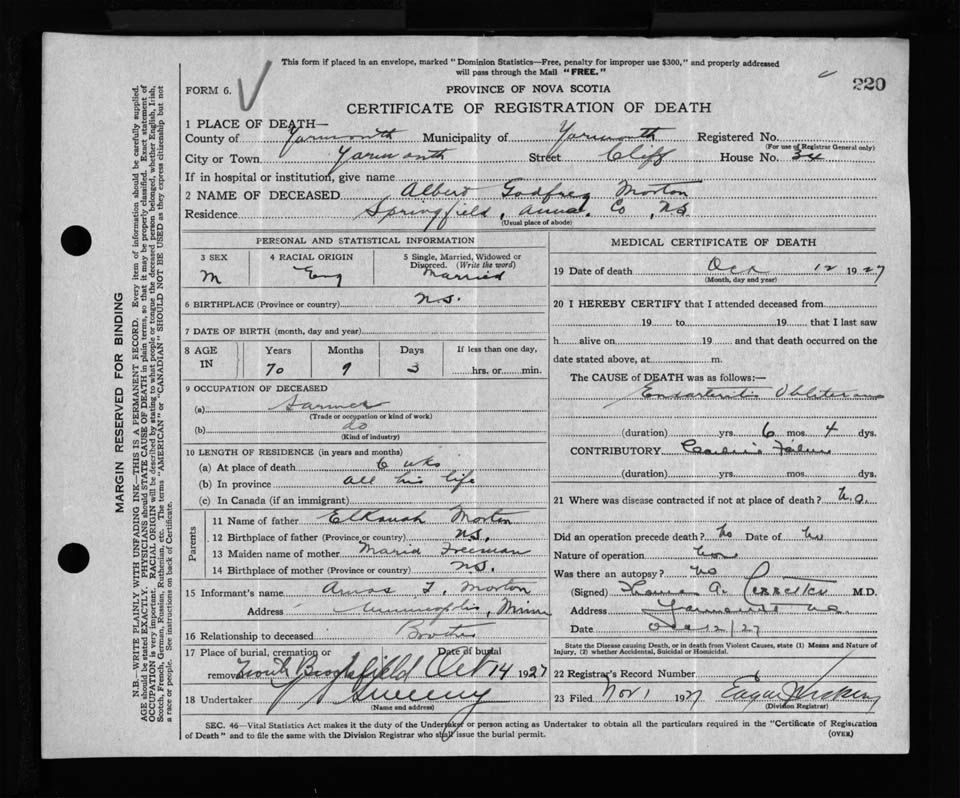 This form if placed in an envelope, marked "Dominion Statistics—Free, penalty for improper use $300," and properly addressed
will pass through the Mail "FREE."
220
FORM 6.
PROVINCE OF NOVA SCOTIA
CERTIFICATE OF REGISTRATION OF DEATH
MARGIN RESERVED FOR BINDING
N.B.—WRITE PLAINLY WITH UNFADING INK—THIS IS A PERMANENT RECORD. Every item of information should be carefully supplied.
AGE should be stated EXACTLY. PHYSICIANS should STATE CAUSE OF DEATH in plain terms, so that it may be properly classified. Exact statement of
OCCUPATION is very important. RACIAL ORIGIN will be described by stating to what people or tongue the deceased person belonged, whether English, Irish,
Scotch, French, German, Russian, Ruthenian, etc. The terms "AMERICAN" or "CANADIAN" SHOULD NOT BE USED as they express citizenship but not
a race or people. See instructions on back of Certificate.
1 PLACE OF DEATH—
County of Yarmouth Municipality of Yarmouth Registered No.
(For use of Registrar General only)
City or Town Yarmouth Street Cliff House No. 34
If in hospital or institution, give name
2 NAME OF DECEASED Albert Godfrey Morton
Residence Springfield, Anna. Co, NS
(Usual place of abode)
PERSONAL AND STATISTICAL INFORMATION
3 SEX
M
4 RACIAL ORIGIN
Eng
5 Single, Married, Widowed or
Divorced. (Write the word)
Married
6 BIRTHPLACE (Province or country) N.S.
7 DATE OF BIRTH (month, day and year)
8 AGE IN
Years Months Days If less than one day,
70 9 3 hrs. or min.
9 OCCUPATION OF DECEASED
(a) Farmer
(Trade or occupation or kind of work)
(b) do
(Kind of industry)
10 LENGTH OF RESIDENCE (in years and months)
(a) At place of death 6 wks
(b) In province all his life
(c) In Canada (if an immigrant)
Parents
11 Name of father Elkanah Morton
12 Birthplace of father (Province or country) N.S.
13 Maiden name of mother Maria Freeman
14 Birthplace of mother (Province or country) N.S.
15 Informant's name Amos F. Morton
Address Minneapolis, Minn
16 Relationship to deceased Brother
17 Place of burial, cremation or Date of burial
removal North Brookfield Oct 14 1927
18 Undertaker Sweeny
(Name and address)
MEDICAL CERTIFICATE OF DEATH
19 Date of death Oct 12 1927
(Month, day and year)
20 I HEREBY CERTIFY that I attended deceased from
19 to 19 that I last saw
h alive on 19 and that death occurred on the
date stated above, at m.
The CAUSE of DEATH was as follows:—
Endarteritis Obliterans
(duration) yrs. 6 mos. 4 dys.
CONTRIBUTORY Cardiac Failure
(duration) yrs. mos. dys.
21 Where was disease contracted if not at place of death?
Did an operation precede death? No Date of
Nature of operation
Was there an autopsy? No
(Signed) A. M.D.
Address Yarmouth NS
Date Oct 12/27
State the Disease causing Death, or in death from Violent Causes, state (1) Means and Nature of
Injury, (2) whether Accidental, Suicidal or Homicidal.
22 Registrar's Record Number
23 Filed Nov 1 1927 Edgar
(Division Registrar)
SEC. 46—Vital Statistics Act makes it the duty of the Undertaker or person acting as Undertaker to obtain all the particulars required in the "Certificate of Registration
of Death" and to file the same with the Division Registrar who shall issue the burial permit.
(OVER)